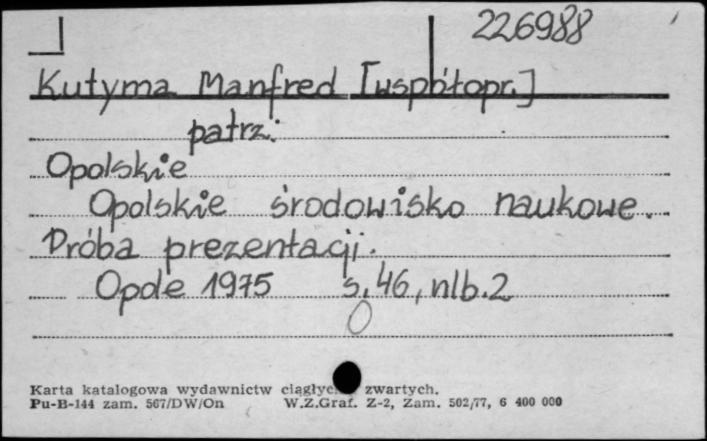 226988
Kutyma Manfred [współopr.]
patrz:
Opolskie
Opolskie środowisko naukowe.
Próba prezentacji.
Opole 1975 s. 46, nlb. 2
Karta katalogowa wydawnictw zwartych.
Pu-B-144 zam. 567/DW/On W.Z.Graf. Z-2, Zam. 502/77, 6 400 000